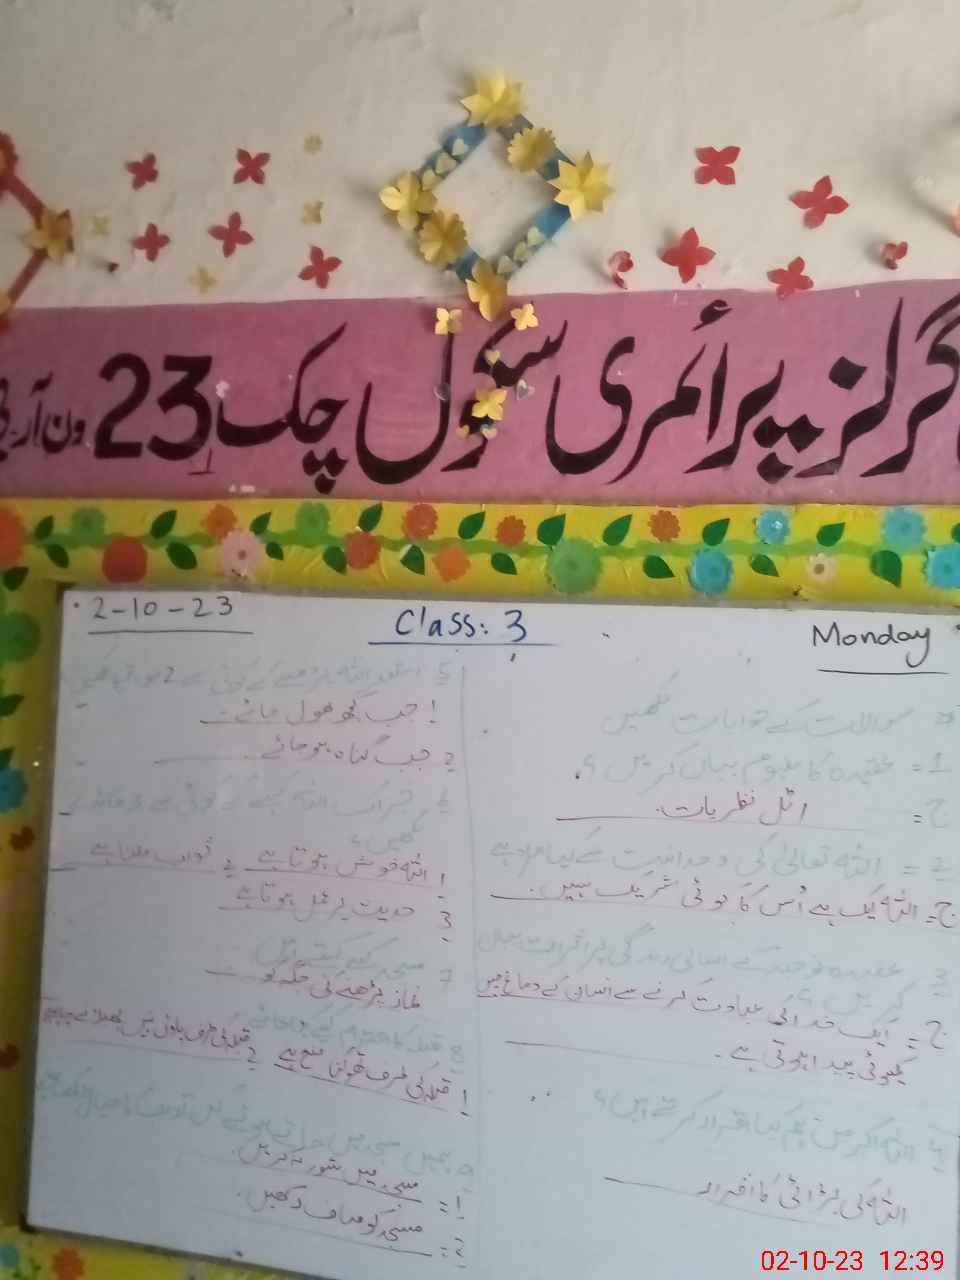 گرلز پرائمری سکول چک 23 ون آر
2-10-23
Class: 3
Monday
سوالات کے جوابات لکھیں
1= عقیدہ کا مفہوم بیان کریں؟
ج= اٹل نظریات
2= اللہ تعالیٰ کی وحدانیت سے کیا مراد ہے
ج= اللہ ایک ہے اُس کا کوئی شریک نہیں۔
3 عقیدہ توحید کے انسانی زندگی پر اثرات بیان
کریں؟
ج= ایک خدا کی عبادت کرنے سے انسان کے دماغ میں
یکسوئی پیدا ہوتی ہے۔
4 اللہ اکبر میں ہم کیا اقرار کرتے ہیں؟
اللہ کی بڑائی کا اقرار
5 استغفر اللہ پڑھنے کے کوئی سے 2 مواقع
1 جب کچھ بھول جائے۔
2 جب گناہ ہو جائے
6 جزاک اللہ کہنے کے کوئی سے 3 فائدے
لکھیں؟
1 اللہ خوش ہوتا ہے 2 ثواب ملتا ہے
3 حدیث پر عمل ہوتا ہے
7 مسجد کسے کہتے ہیں
نماز پڑھنے کی جگہ کو
8 قبلہ کا احترام کیسے کیا جائے
1 قبلہ کی طرف تھوکنا منع ہے 2 قبلہ کی طرف پاؤں نہیں پھیلانے چاہیے
9 ہمیں مسجد میں جاتے ہوئے کن آداب کا خیال رکھنا
1= مسجد میں شور نہ کریں۔
2= مسجد کو صاف رکھیں۔
02-10-23 12:39